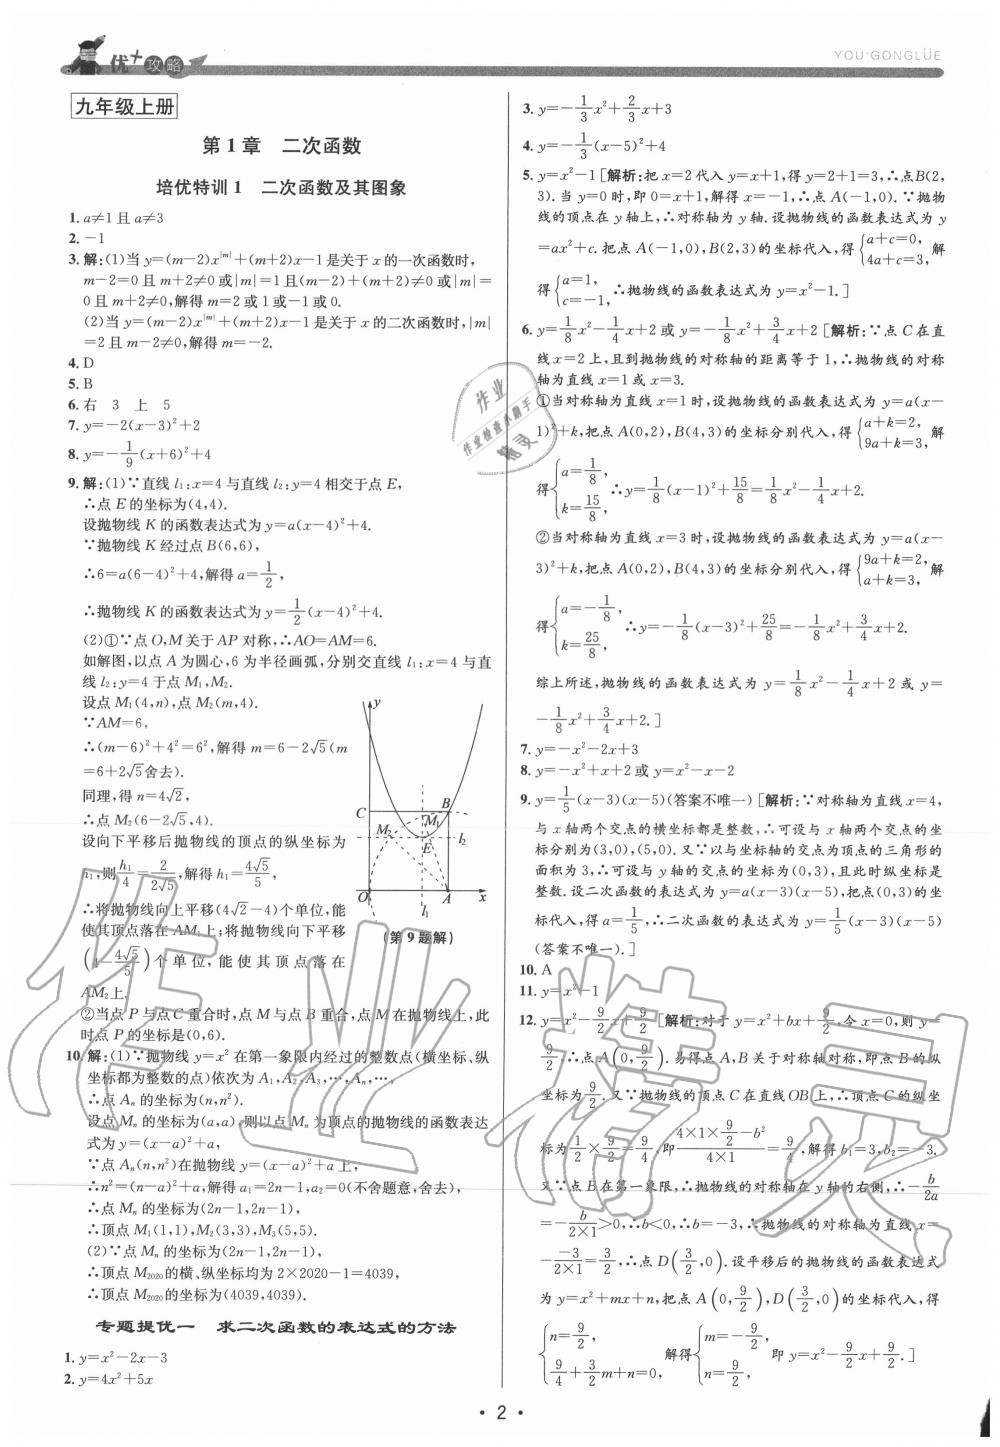 优+攻略
YOU+GONGLÜE
九年级上册
第1章 二次函数
培优特训1 二次函数及其图象
1. a≠1且a≠3
2. －1
3. 解:(1)当y=(m－2)x^|m|+(m+2)x－1是关于x的一次函数时,
m－2=0且m+2≠0或|m|=1且(m－2)+(m+2)≠0或|m|=
0且m+2≠0,解得m=2或1或－1或0.
(2)当y=(m－2)x^|m|+(m+2)x－1是关于x的二次函数时,|m|
=2且m－2≠0,解得m=－2.
4. D
5. B
6. 右 3 上 5
7. y=－2(x－3)²+2
8. y=－1/9(x+6)²+4
9. 解:(1)∵直线l₁:x=4与直线l₂:y=4相交于点E,
∴点E的坐标为(4,4).
设抛物线K的函数表达式为y=a(x－4)²+4.
∵抛物线K经过点B(6,6),
∴6=a(6－4)²+4,解得a=1/2,
∴抛物线K的函数表达式为y=1/2(x－4)²+4.
(2)①∵点O,M关于AP对称,∴AO=AM=6.
如解图,以点A为圆心,6为半径画弧,分别交直线l₁:x=4与直
线l₂:y=4于点M₁,M₂.
设点M₁(4,n),点M₂(m,4).
∵AM=6,
∴(m－6)²+4²=6²,解得m=6－2√5(m
=6+2√5舍去).
同理,得n=4√2,
∴点M₂(6－2√5,4).
设向下平移后抛物线的顶点的纵坐标为
h₁,则h₁/4=2/(2√5),解得h₁=4√5/5,
∴将抛物线向上平移(4√2－4)个单位,能
使其顶点落在AM₁上;将抛物线向下平移
(4－4√5/5)个单位,能使其顶点落在
AM₂上.
y
C
B
M₁
M₂
E
l₂
O
A
x
l₁
(第9题解)
②当点P与点C重合时,点M与点B重合,点M在抛物线上,此
时点P的坐标是(0,6).
10. 解:(1)∵抛物线y=x²在第一象限内经过的整数点(横坐标、纵
坐标都为整数的点)依次为A₁,A₂,A₃,…,Aₙ,…,
∴点Aₙ的坐标为(n,n²).
设点Mₙ的坐标为(a,a),则以点Mₙ为顶点的抛物线的函数表达
式为y=(x－a)²+a,
∵点Aₙ(n,n²)在抛物线y=(x－a)²+a上,
∴n²=(n－a)²+a,解得a₁=2n－1,a₂=0(不舍题意,舍去),
∴点Mₙ的坐标为(2n－1,2n－1),
∴顶点M₁(1,1),M₂(3,3),M₃(5,5).
(2)∵点Mₙ的坐标为(2n－1,2n－1),
∴顶点M₂₀₂₀的横、纵坐标均为2×2020－1=4039,
∴顶点M₂₀₂₀的坐标为(4039,4039).
专题提优一 求二次函数的表达式的方法
1. y=x²－2x－3
2. y=4x²+5x
3. y=－1/3x²+2/3x+3
4. y=－1/3(x－5)²+4
5. y=x²－1[解析:把x=2代入y=x+1,得y=2+1=3,∴点B(2,
3).当y=0时,即0=x+1,解得x=－1,∴点A(－1,0).∵抛物
线的顶点在y轴上,∴对称轴为y轴.设抛物线的函数表达式为y
=ax²+c.把点A(－1,0),B(2,3)的坐标代入,得{a+c=0, 4a+c=3,解
得{a=1, c=－1,∴抛物线的函数表达式为y=x²－1.]
6. y=1/8x²－1/4x+2或y=－1/8x²+3/4x+2[解析:∵点C在直
线x=2上,且到抛物线的对称轴的距离等于1,∴抛物线的对称
轴为直线x=1或x=3.
①当对称轴为直线x=1时,设抛物线的函数表达式为y=a(x－
1)²+k,把点A(0,2),B(4,3)的坐标分别代入,得{a+k=2, 9a+k=3,解
得{a=1/8, k=15/8,∴y=1/8(x－1)²+15/8=1/8x²－1/4x+2.
②当对称轴为直线x=3时,设抛物线的函数表达式为y=a(x－
3)²+k,把点A(0,2),B(4,3)的坐标分别代入,得{9a+k=2, a+k=3,解
得{a=－1/8, k=25/8,∴y=－1/8(x－3)²+25/8=－1/8x²+3/4x+2.
综上所述,抛物线的函数表达式为y=1/8x²－1/4x+2或y=
－1/8x²+3/4x+2.]
7. y=－x²－2x+3
8. y=－x²+x+2或y=x²－x－2
9. y=1/5(x－3)(x－5)(答案不唯一)[解析:∵对称轴为直线x=4,
与x轴两个交点的横坐标都是整数,∴可设与x轴两个交点的坐
标分别为(3,0),(5,0).又∵以与坐标轴的交点为顶点的三角形的
面积为3,∴可设与y轴的交点的坐标为(0,3),且此时纵坐标是
整数.设二次函数的表达式为y=a(x－3)(x－5),把点(0,3)的坐
标代入,得a=1/5,∴二次函数的表达式为y=1/5(x－3)(x－5)
(答案不唯一).]
10. A
11. y=x²－1
12. y=x²－9/2x+9/2[解析:对于y=x²+bx+9/2,令x=0,则y=
9/2,∴点A(0,9/2).易得点A,B关于对称轴对称,即点B的纵
坐标为9/2.又∵抛物线的顶点C在直线OB上,∴顶点C的纵坐
标为1/2×9/2=9/4,即(4×1×9/2－b²)/(4×1)=9/4,解得b₁=3,b₂=－3.
又∵点B在第一象限,∴抛物线的对称轴在y轴的右侧,∴－b/2a
=－b/(2×1)>0,∴b<0,∴b=－3,∴抛物线的对称轴为直线x=
－(－3)/(2×1)=3/2,∴点D(3/2,0).设平移后的抛物线的函数表达式
为y=x²+mx+n,把点A(0,9/2),D(3/2,0)的坐标代入,得
{n=9/2, 9/4+3/2m+n=0,解得{m=－9/2, n=9/2,即y=x²－9/2x+9/2.]
• 2 •
作业
作业检查小助手
精灵
作业精灵